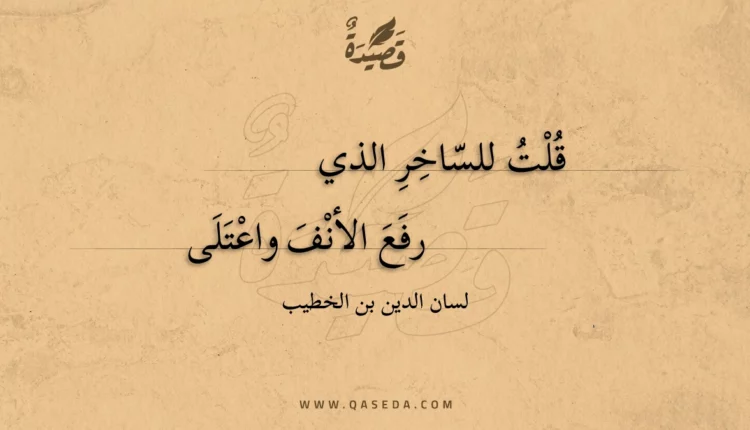 قَصِيْدَةٌ
قُلْتُ للسّاخِرِ الذي
رفَعَ الأنْفَ واعْتَلَى
لسان الدين بن الخطيب
WWW.QASEDA.COM